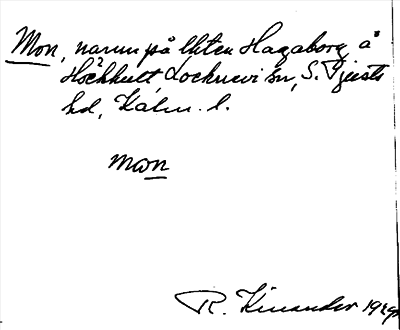 Mon, namn på lhten Hagaborg å
Höckhult Locknevi sn, S. Tjusts
hd, Kalm. l.
mon
R. Kinander 1929